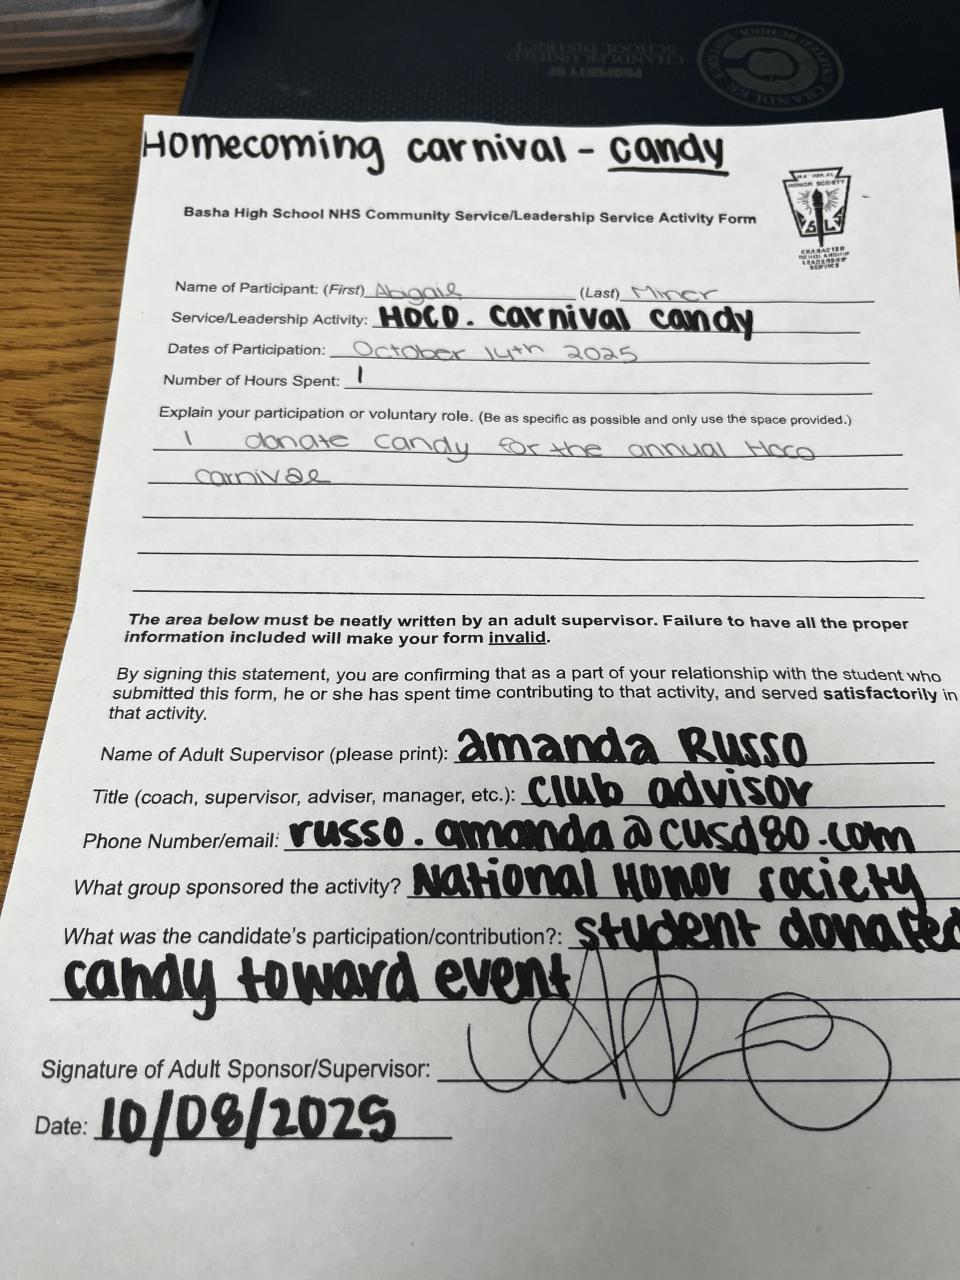 PROPERTY OF
CHANDLER UNIFIED
SCHOOL DISTRICT
Homecoming carnival - candy
NATIONAL
HONOR SOCIETY
CHARACTER
SCHOLARSHIP
LEADERSHIP
SERVICE
Basha High School NHS Community Service/Leadership Service Activity Form
Name of Participant: (First) Abigail (Last) Miner
Service/Leadership Activity: HOCO. carnival candy
Dates of Participation: October 14th 2025
Number of Hours Spent: 1
Explain your participation or voluntary role. (Be as specific as possible and only use the space provided.)
I donate candy for the annual Hoco
carnival
The area below must be neatly written by an adult supervisor. Failure to have all the proper
information included will make your form invalid.
By signing this statement, you are confirming that as a part of your relationship with the student who
submitted this form, he or she has spent time contributing to that activity, and served satisfactorily in
that activity.
Name of Adult Supervisor (please print): amanda Russo
Title (coach, supervisor, adviser, manager, etc.): club advisor
Phone Number/email: russo.amanda@cusd80.com
What group sponsored the activity? National Honor society
What was the candidate's participation/contribution?: student donated
candy toward event
Signature of Adult Sponsor/Supervisor:
Date: 10/08/2025